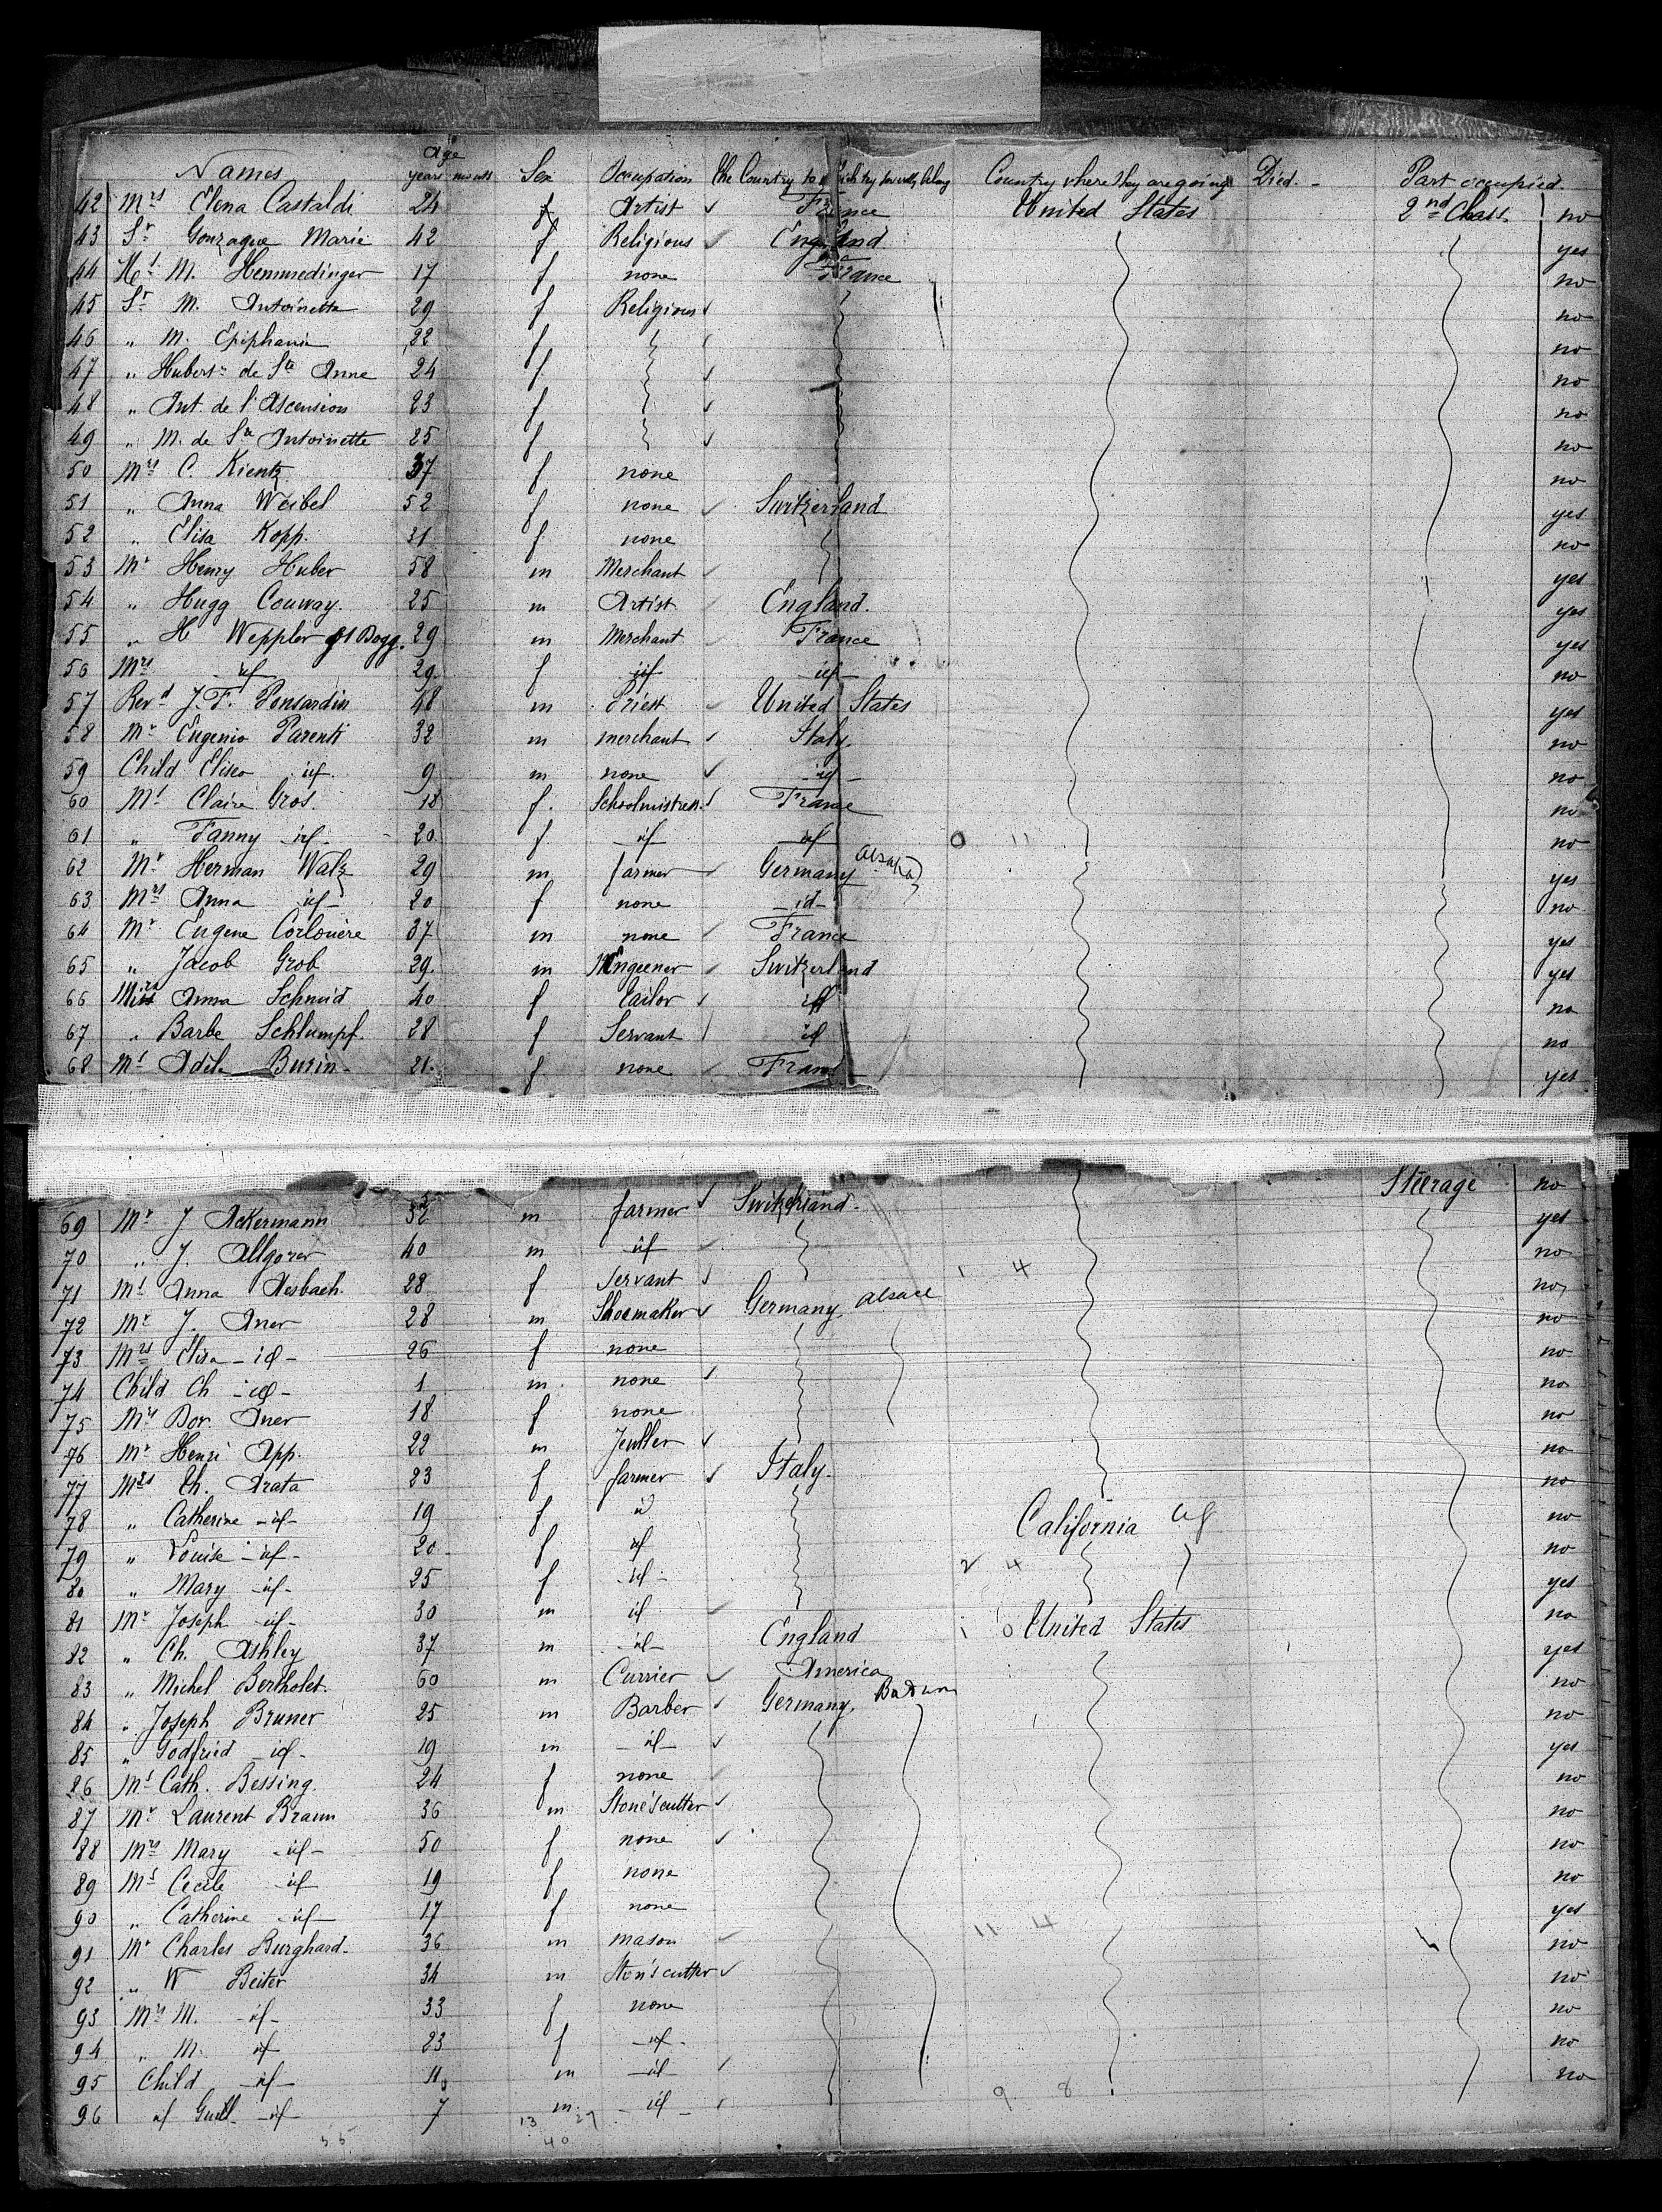 Names Age years months Sex Occupation The Country to which they severally belong Country where they are going Died. Part occupied.
42 Mrs Elena Castaldi 24 f Artist France United States 2nd Class. no
43 Sr Gonzague Marie 42 f Religious England yes
44 M. Hemmedinger 17 f none France no
45 Sr M. Antoinette 29 f Religious no
46 " M. Epiphanie 22 f no
47 " Hubert de Ste Anne 24 f no
48 " Ant. de l'Ascension 23 f no
49 " M. de Ste Antoinette 25 f no
50 Mrs C. Kientz 37 f none no
51 " Anna Weibel 52 f none Switzerland yes
52 " Elisa Kopp. 31 f none no
53 Mr Henry Huber 58 m Merchant yes
54 " Hugg Conway. 25 m Artist England. yes
55 " H Weppler 29 m Merchant France yes
56 Mrs id 29 f id id no
57 Revd J.F. Ponsardin 48 m Priest United States yes
58 Mr Eugenio Parenti 32 m merchant Italy. no
59 Child Eliseo id 9 m none id no
60 Ms Claire Gros. 18 f. Schoolmistress. France no
61 " Fanny id 20 f id id 0 11 no
62 Mr Herman Walz 29 m farmer Germany yes
63 Mrs Anna id 20 f none id no
64 Mr Eugene Corlouëre 37 m none France yes
65 " Jacob Grob 29. m Switzerland yes
66 Anna Schmid 40 f tailor id no
67 " Barbe Schlumpf. 28 f Servant id no
68 Ms Adele Burin 21. f none France yes
Steerage no
69 Mr J Ackermann 32 m farmer Switzerland. yes
70 " J. Allgorer 40 m id no
71 Ms Anna Aesbach. 28 f Servant 1 4 no
72 Mr J. Aner 28 m Shoemaker Germany Alsace no
73 Mrs Elisa id 26 f none no
74 Child Ch id 1 m. none no
75 Mrs Dor. Aner 18 f none no
76 Mr Henri App. 22 m Jeuller no
77 Mrs Ch. Arata 23 f farmer Italy. no
78 " Catherine id 19 f id California no
79 " Louise id 20 f id 2 4 no
80 " Mary id 25 f id yes
81 Mr Joseph id 30 m id United States no
82 " Ch. Ashley 37 m id England yes
83 " Michel Bertholet. 60 m Currier America no
84 " Joseph Bruner 25 m Barber Germany. no
85 " Godfried id 19 m id yes
86 Ms Cath. Bessing. 24 f none no
87 Mr Laurent Braun 36 m Stone'scutter no
88 Mrs Mary id 50 f none no
89 Ms Cecile id 19 f none no
90 " Catherine id 17 f none 11 4 yes
91 Mr Charles Burghard. 36 m mason no
92 " W Beiter 34 m Ston'scutter no
93 Mrs M. id 33 f none no
94 " M. id 23 f id no
95 Child id 11 m id 9 8 no
96 id id 7 m. id
13 27
40